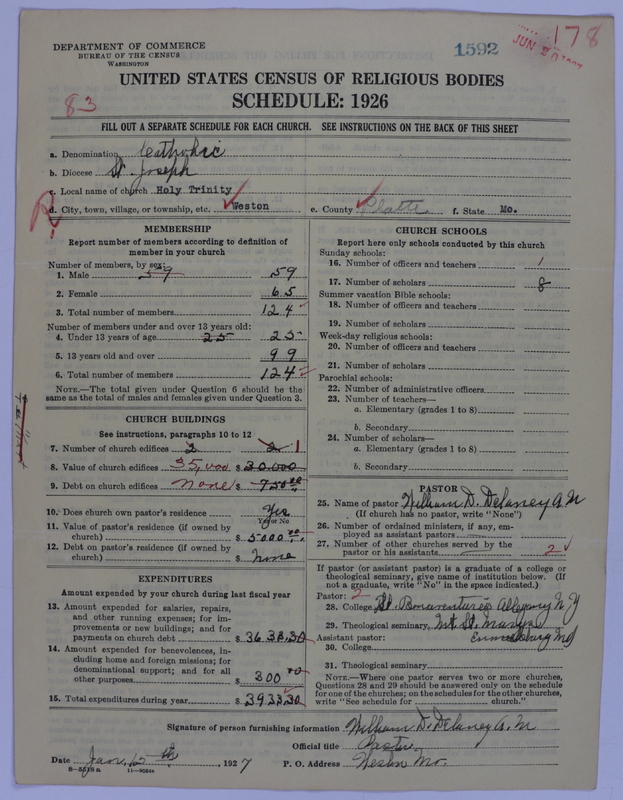 DEPARTMENT OF COMMERCE
BUREAU OF THE CENSUS
WASHINGTON
1592
178
JUN 20
UNITED STATES CENSUS OF RELIGIOUS BODIES
SCHEDULE: 1926
83
FILL OUT A SEPARATE SCHEDULE FOR EACH CHURCH. SEE INSTRUCTIONS ON THE BACK OF THIS SHEET
a. Denomination Catholic
b. Diocese St. Joseph
c. Local name of church Holy Trinity
d. City, town, village, or township, etc. Weston e. County Platte f. State Mo.
MEMBERSHIP
Report number of members according to definition of
member in your church
Number of members, by sex:
1. Male 59 59
2. Female 65
3. Total number of members 124
Number of members under and over 13 years old:
4. Under 13 years of age 25 25
5. 13 years old and over 99
6. Total number of members 124
NOTE.—The total given under Question 6 should be the
same as the total of males and females given under Question 3.
CHURCH BUILDINGS
See instructions, paragraphs 10 to 12
7. Number of church edifices 2 2 1
8. Value of church edifices 35,000 $ 30.000
9. Debt on church edifices none $ 750 00
10. Does church own pastor's residence Yes
Yes or No
11. Value of pastor's residence (if owned by
church) $ 5000 00
12. Debt on pastor's residence (if owned by
church) $ none
EXPENDITURES
Amount expended by your church during last fiscal year
13. Amount expended for salaries, repairs,
and other running expenses; for im-
provements or new buildings; and for
payments on church debt $ 3633.30
14. Amount expended for benevolences, in-
cluding home and foreign missions; for
denominational support; and for all
other purposes $ 300 00
15. Total expenditures during year $ 3933.30
CHURCH SCHOOLS
Report here only schools conducted by this church
Sunday schools:
16. Number of officers and teachers 1
17. Number of scholars 8
Summer vacation Bible schools:
18. Number of officers and teachers
19. Number of scholars
Week-day religious schools:
20. Number of officers and teachers
21. Number of scholars
Parochial schools:
22. Number of administrative officers
23. Number of teachers—
a. Elementary (grades 1 to 8)
b. Secondary
24. Number of scholars—
a. Elementary (grades 1 to 8)
b. Secondary
PASTOR
25. Name of pastor William D. Delaney A. M
(If church has no pastor, write "None")
26. Number of ordained ministers, if any, em-
ployed as assistant pastors
27. Number of other churches served by the
pastor or his assistants 2
If pastor (or assistant pastor) is a graduate of a college or
theological seminary, give name of institution below. (If
not a graduate, write "No" in the space indicated.)
Pastor: 2
28. College St. Bonaventure Allegany N Y
29. Theological seminary Mt St. Marys
Assistant pastor: Emmitsburg Md
30. College
31. Theological seminary
NOTE.—Where one pastor serves two or more churches,
Questions 28 and 29 should be answered only on the schedule
for one of the churches; on the schedules for the other churches,
write "See schedule for church."
Signature of person furnishing information William D. Delaney A. M
Official title Pastor
Date Jan. 12th, 1927 P. O. Address Weston Mo.
8—5518 a